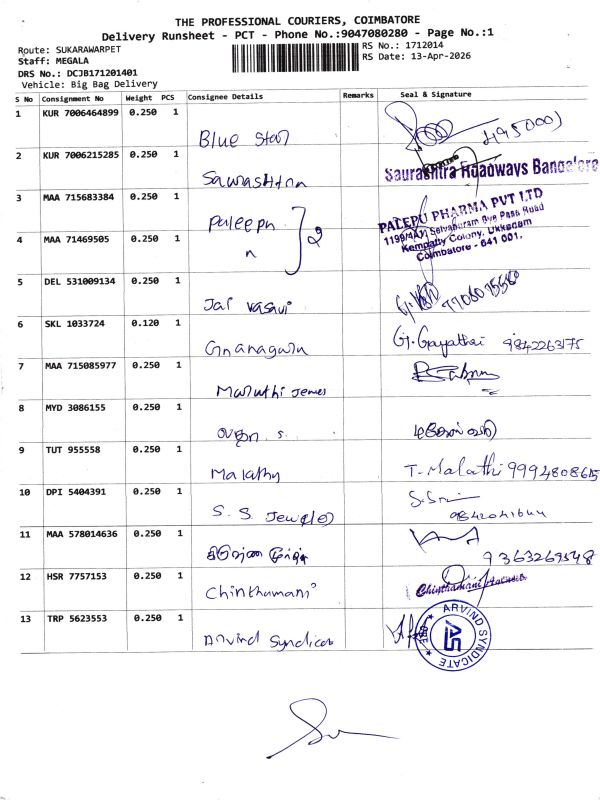 THE PROFESSIONAL COURIERS, COIMBATORE
Delivery Runsheet - PCT - Phone No.:9047080280 - Page No.:1
Route: SUKARAWARPET
RS No.: 1712014
Staff: MEGALA
RS Date: 13-Apr-2026
DRS No.: DCJB171201401
Vehicle: Big Bag Delivery
S No Consignment No Weight PCS Consignee Details Remarks Seal & Signature
1 KUR 7006464899 0.250 1 Blue Star
2 KUR 7006215285 0.250 1 Saurashtra Saurashtra Roadways Bangalore
3 MAA 715683384 0.250 1 Paleepu 2
PALEPU PHARMA PVT LTD
Selvapuram Bye Pass Road
Kempatty Colony, Ukkadam
Coimbatore - 641 001.
4 MAA 71469505 0.250 1 "
5 DEL 531009134 0.250 1 Jai Vasavi
6 SKL 1033724 0.120 1 Gnanaguru G. Gayathri 9842263175
7 MAA 715085977 0.250 1 Maruthi Jewes
8 MYD 3086155 0.250 1
9 TUT 955558 0.250 1 Malathy T. Malathi 9994808615
10 DPI 5404391 0.250 1 S. S. Jewel
11 MAA 578014636 0.250 1 9363269548
12 HSR 7757153 0.250 1 Chinthamani Chinthamani
13 TRP 5623553 0.250 1 Arvind Syndicat
ARVIND SYNDICATE
AS
CBE